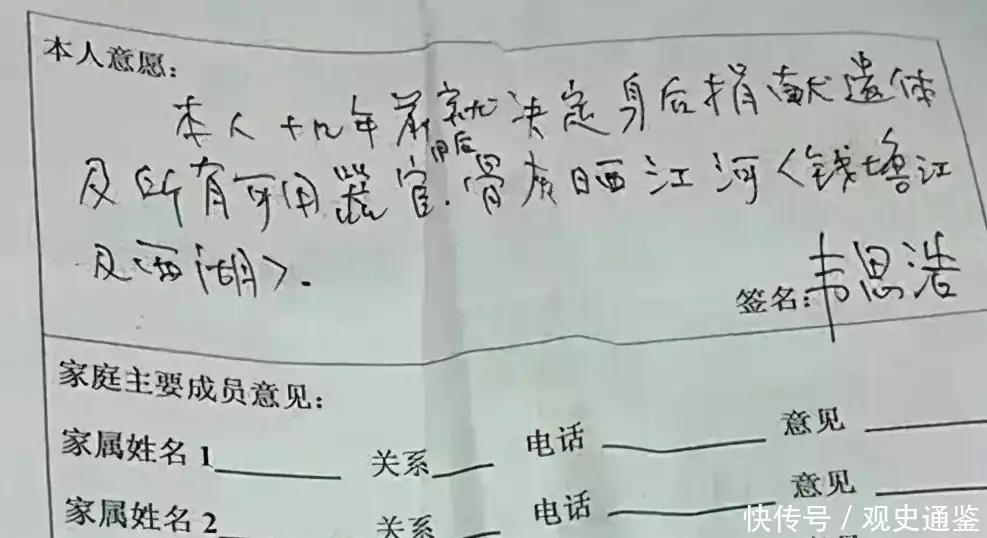 本人意愿:
本人十几年前就决定身后捐献遗体
用后
及所有可用器官.骨灰晒江河<钱塘江
及西湖>.
签名:韦思浩
家庭主要成员意见:
家属姓名1 关系 电话 意见
家属姓名2 关系 电话 意见
快传号/观史通鉴